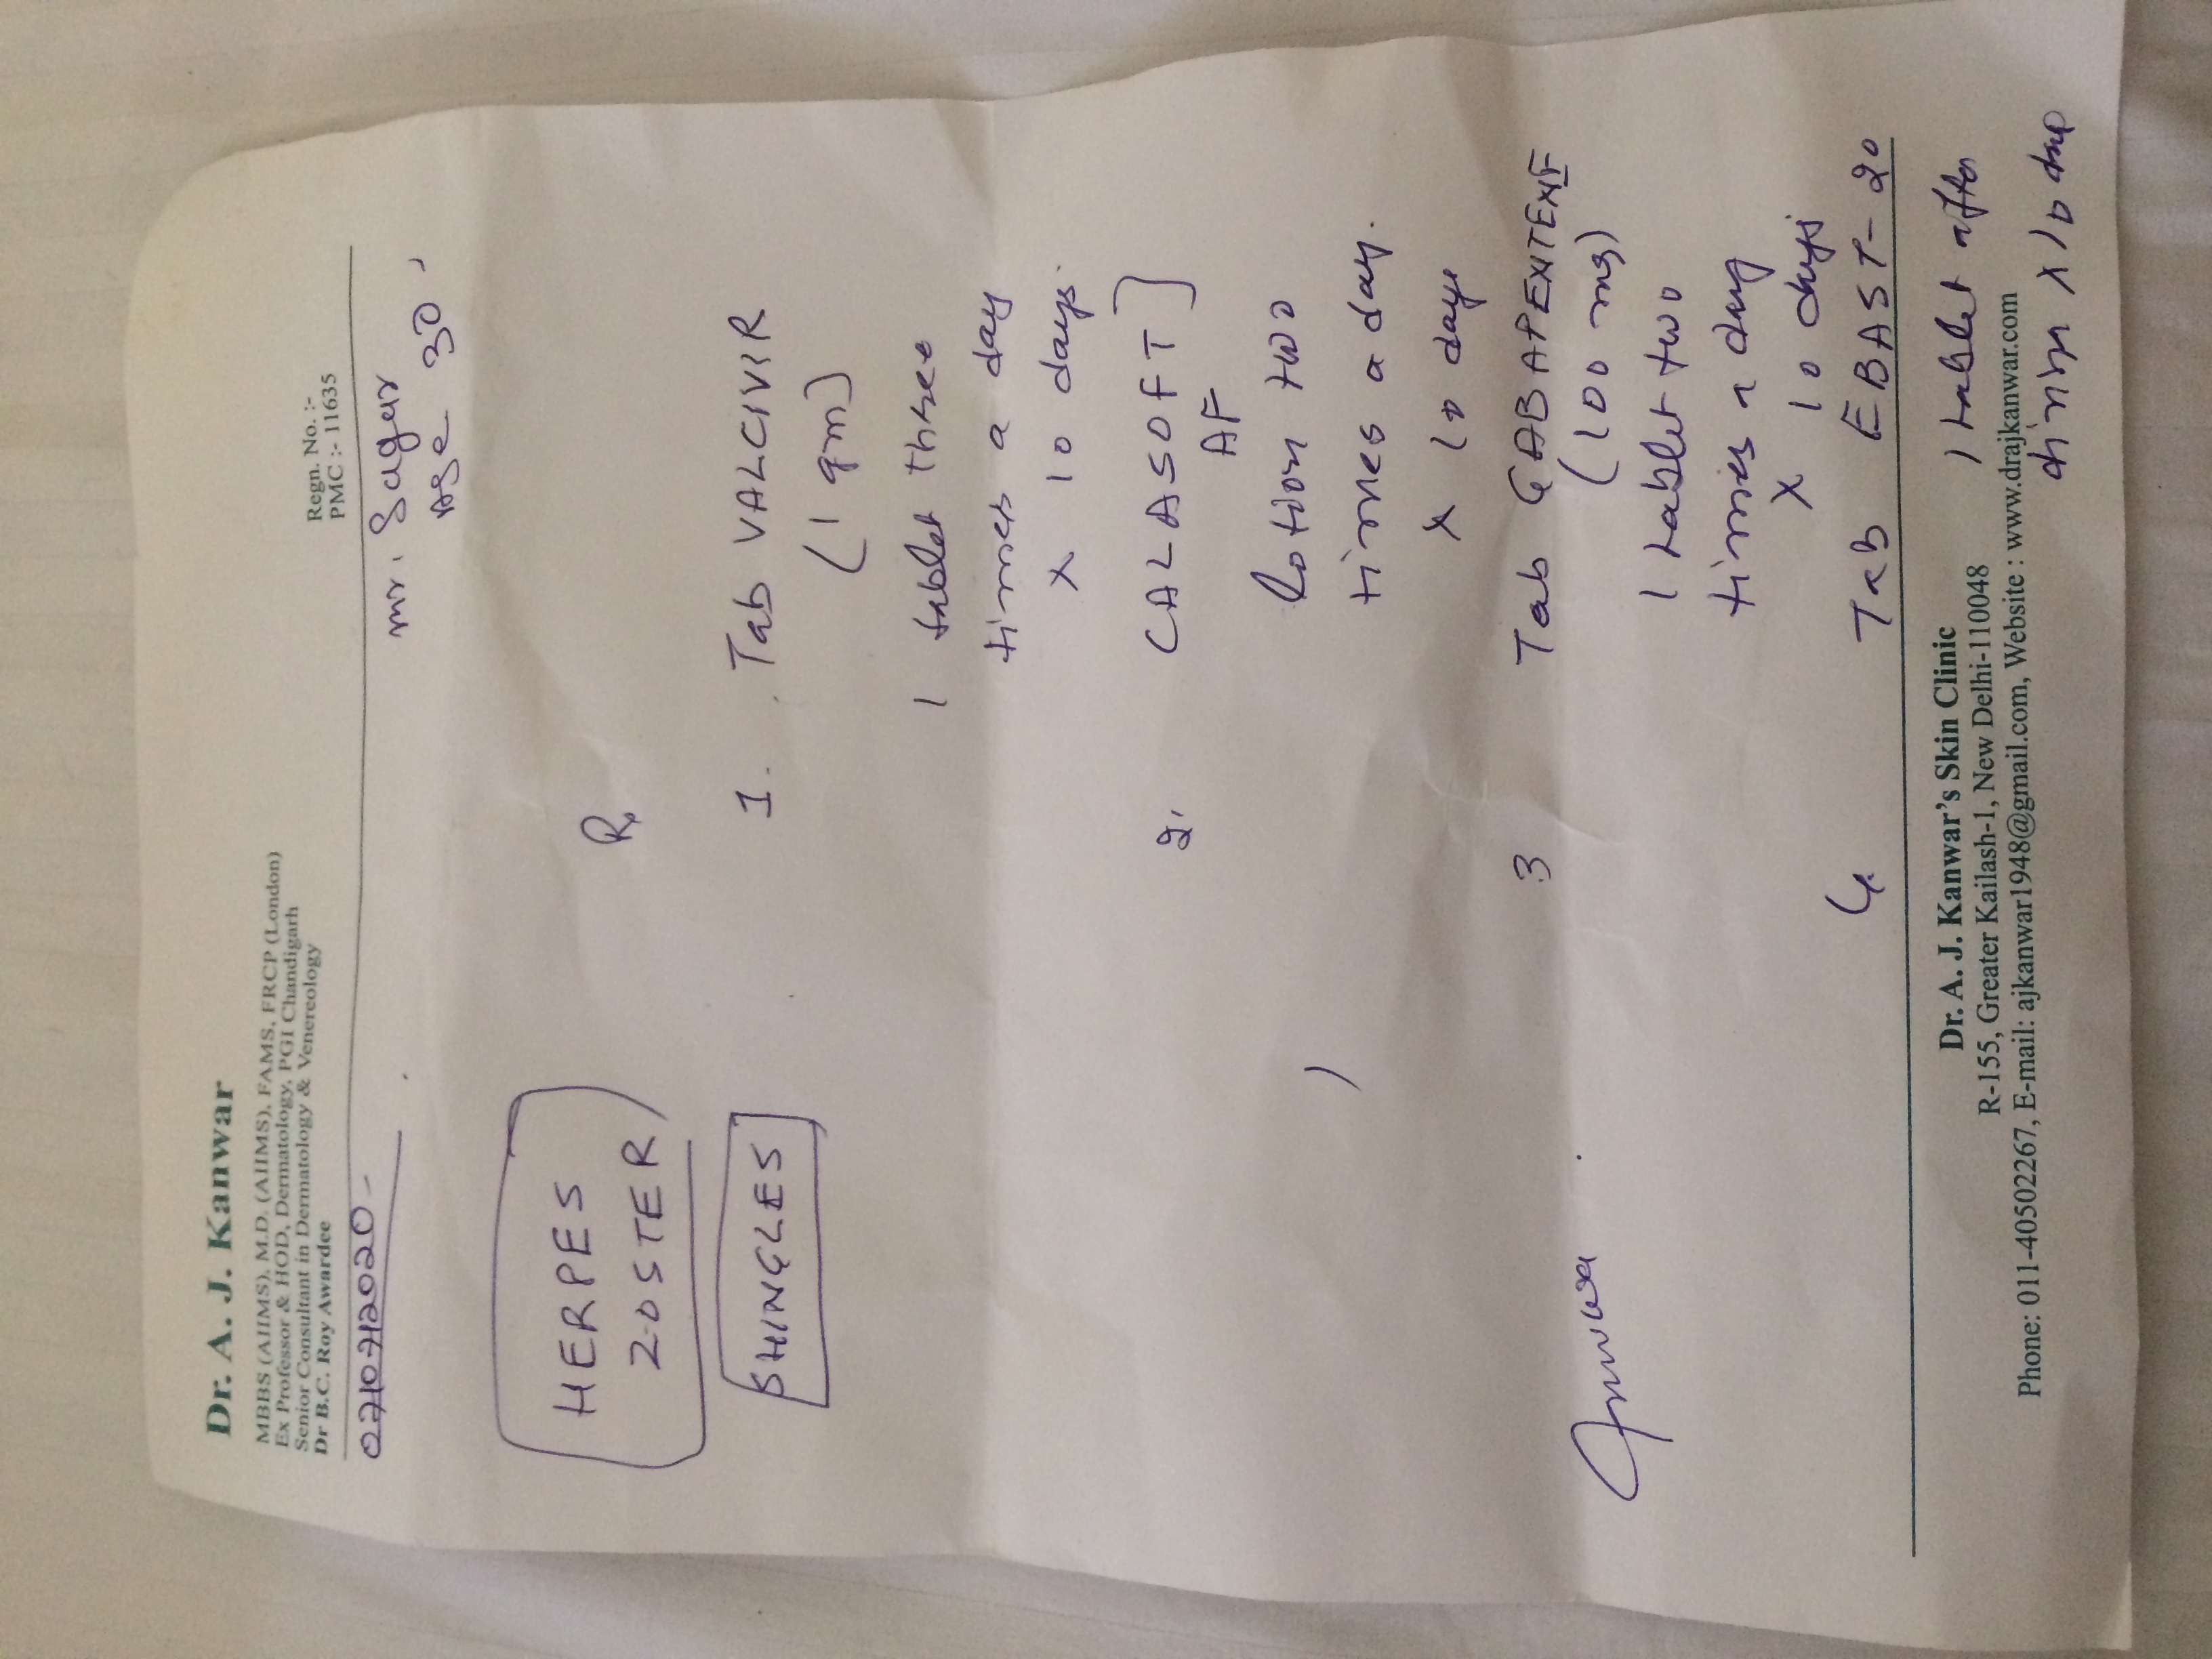 Dr. A. J. Kanwar
MBBS (AIIMS), M.D. (AIIMS), FAMS, FRCP (London)
Ex Professor & HOD, Dermatology, PGI Chandigarh
Senior Consultant in Dermatology & Venereology
Dr B.C. Roy Awardee
Regn. No. :-
PMC :- 11635
07/07/2020
mr. Sagar
Age 30
HERPES
ZOSTER
SHINGLES
Rx
1. Tab VALCIVIR
(1 gm)
1 tablet three
times a day
x 10 days.
2. CALASOFT]
AF
lotion two
times a day.
x 10 days
3 Tab GABAPENTENE
(100 mg)
1 tablet two
times a day
x 10 days
4. Tab EBAST-20
1 tablet after
dinner x 10 days
Dr. A. J. Kanwar's Skin Clinic
R-155, Greater Kailash-1, New Delhi-110048
Phone: 011-40502267, E-mail: ajkanwar1948@gmail.com, Website : www.drajkanwar.com